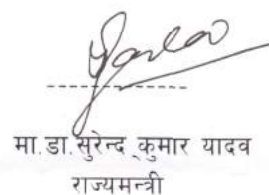 मा.डा.सुरेन्द्र कुमार यादव
राज्यमन्त्री